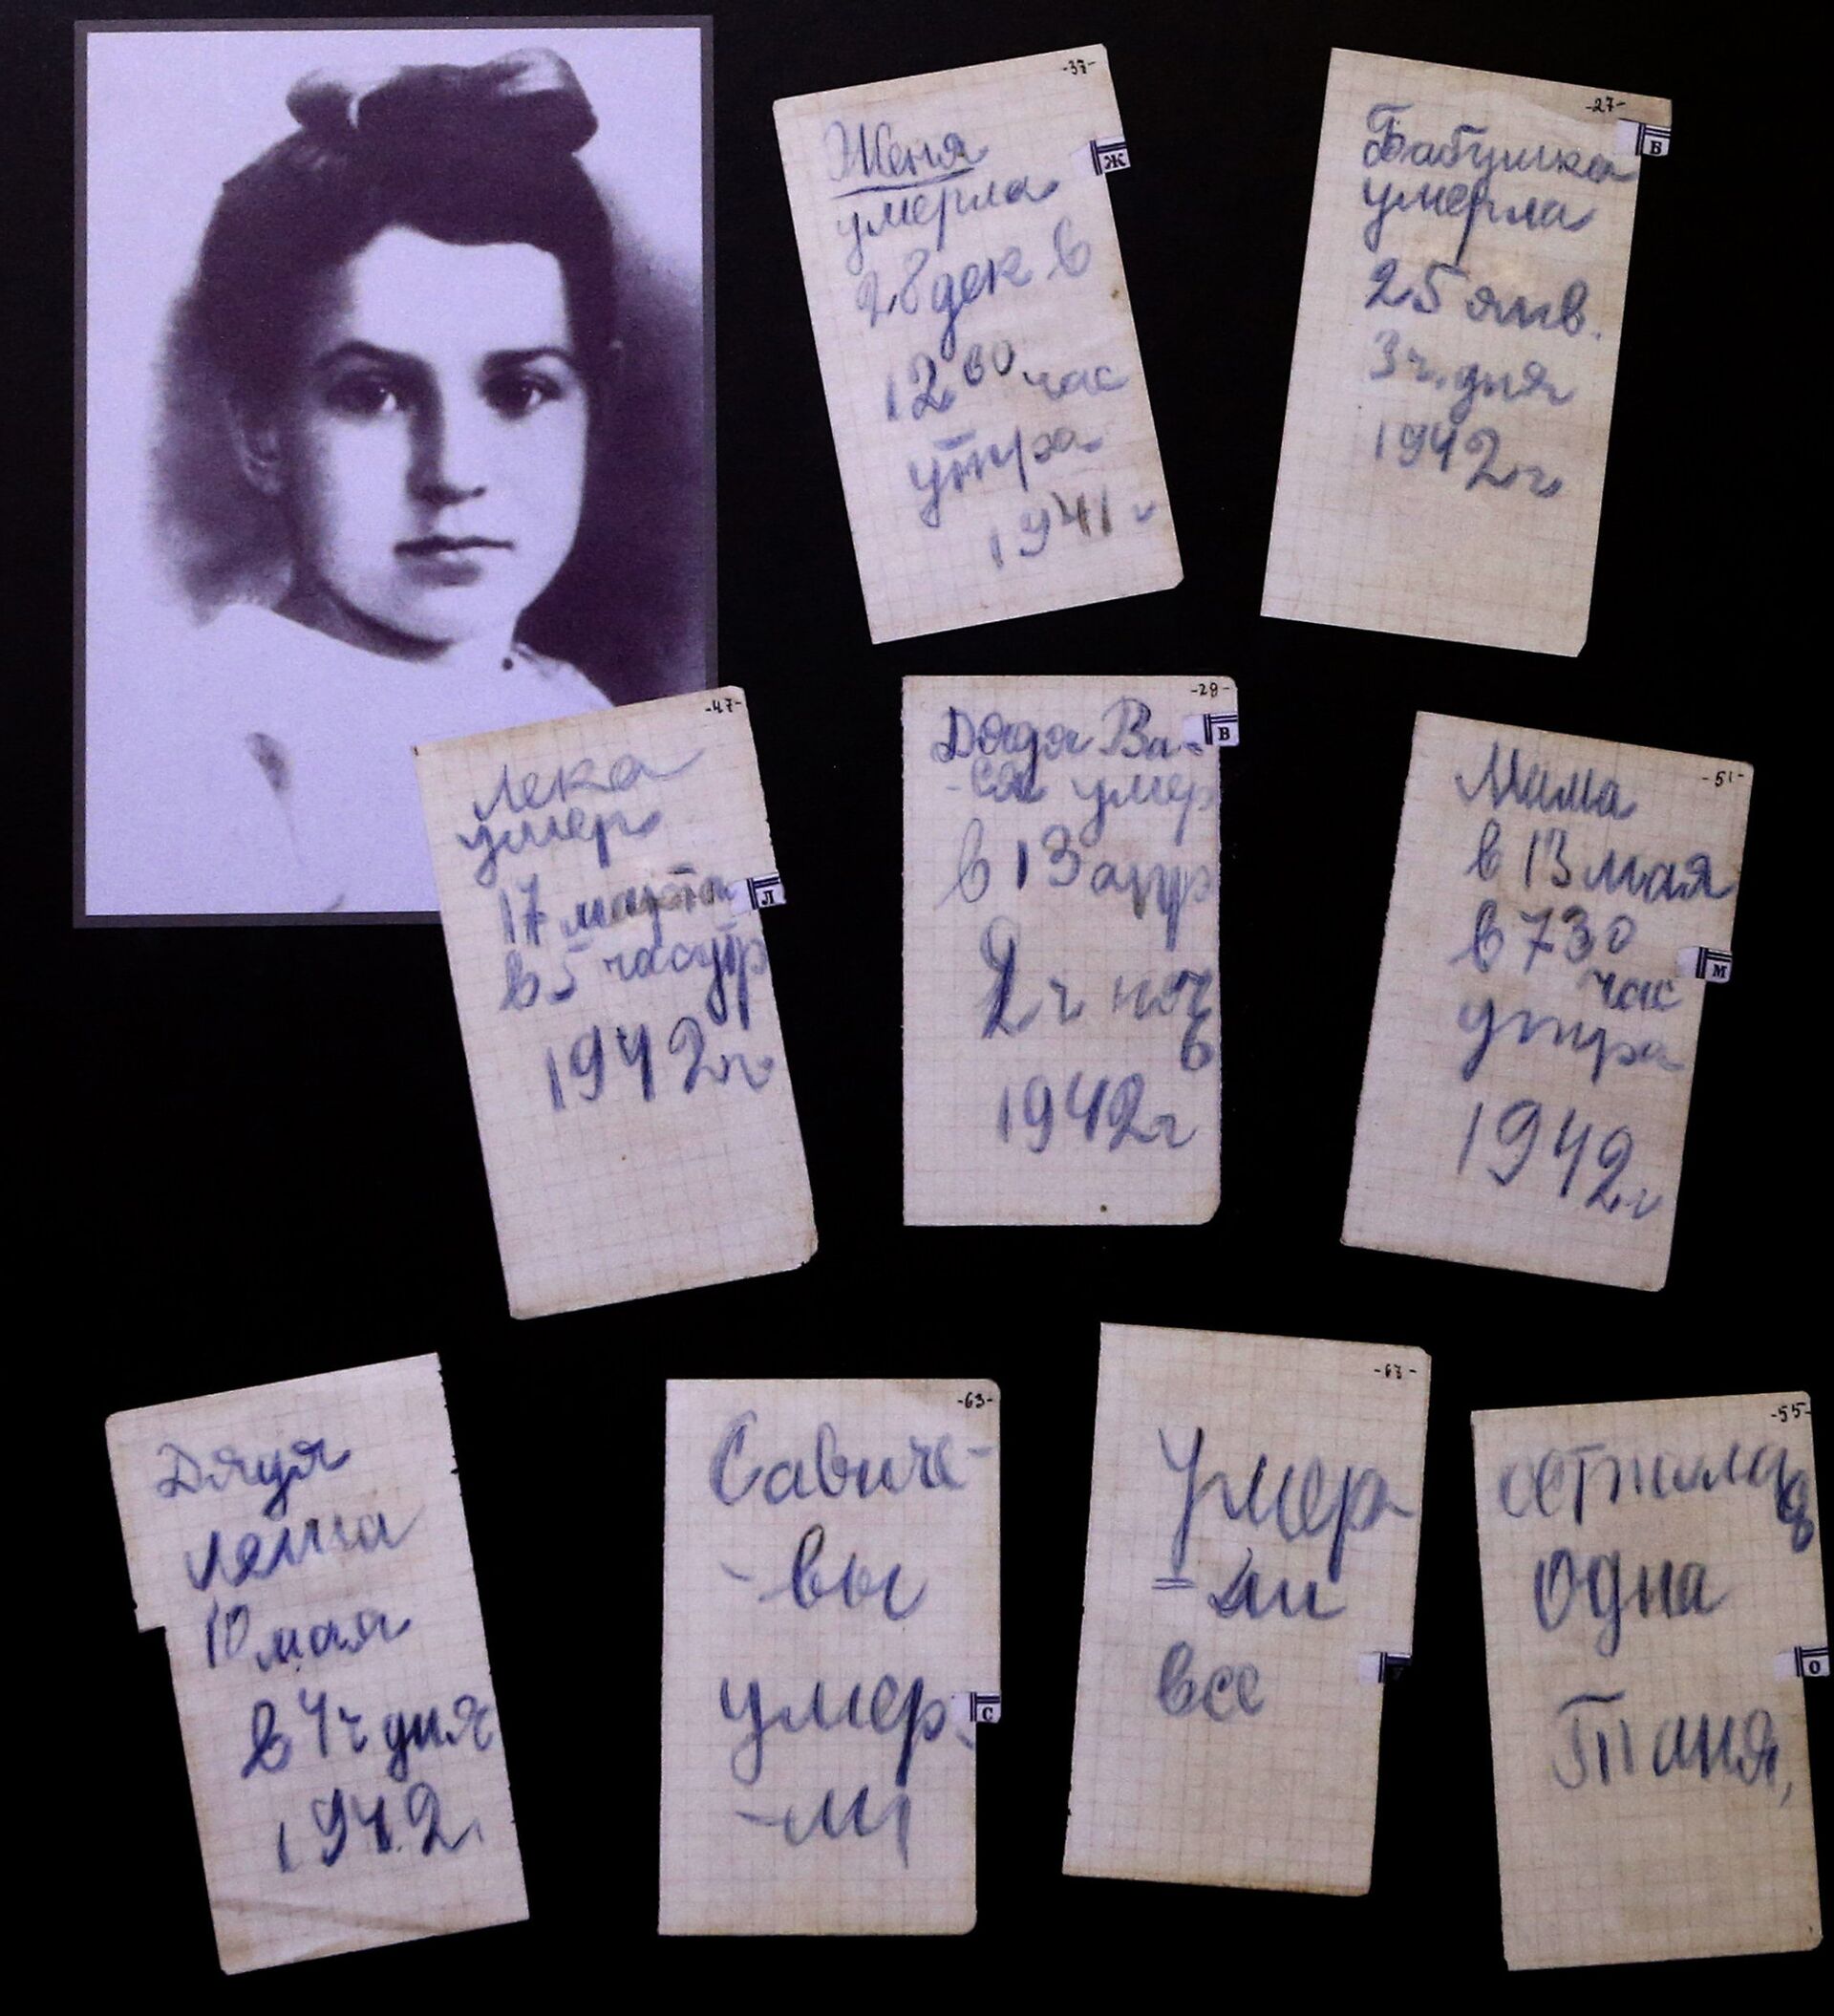 -37-
Женя
Ж
умерла
28 дек в
12 00 час
утра
1941 г
-27-
Бабушка
Б
умерла
25 янв.
3 ч. дня
1942 г
-47-
Лека
умер
17 марта
Л
в 5 час утр
1942 г
-28-
Дядя Ва-
В
-ся умер
в 13 апр
2 ч ноч
ь
1942 г
-51-
Мама
в 13 мая
в 7 30
М
час
утра
1942 г
Дядя
Леша
10 мая
в 4 ч дня
1942
-63-
Савиче-
-вы
умер-
С
-ли
-67-
Умер
=ли
все
-55-
осталась
одна
О
Таня,